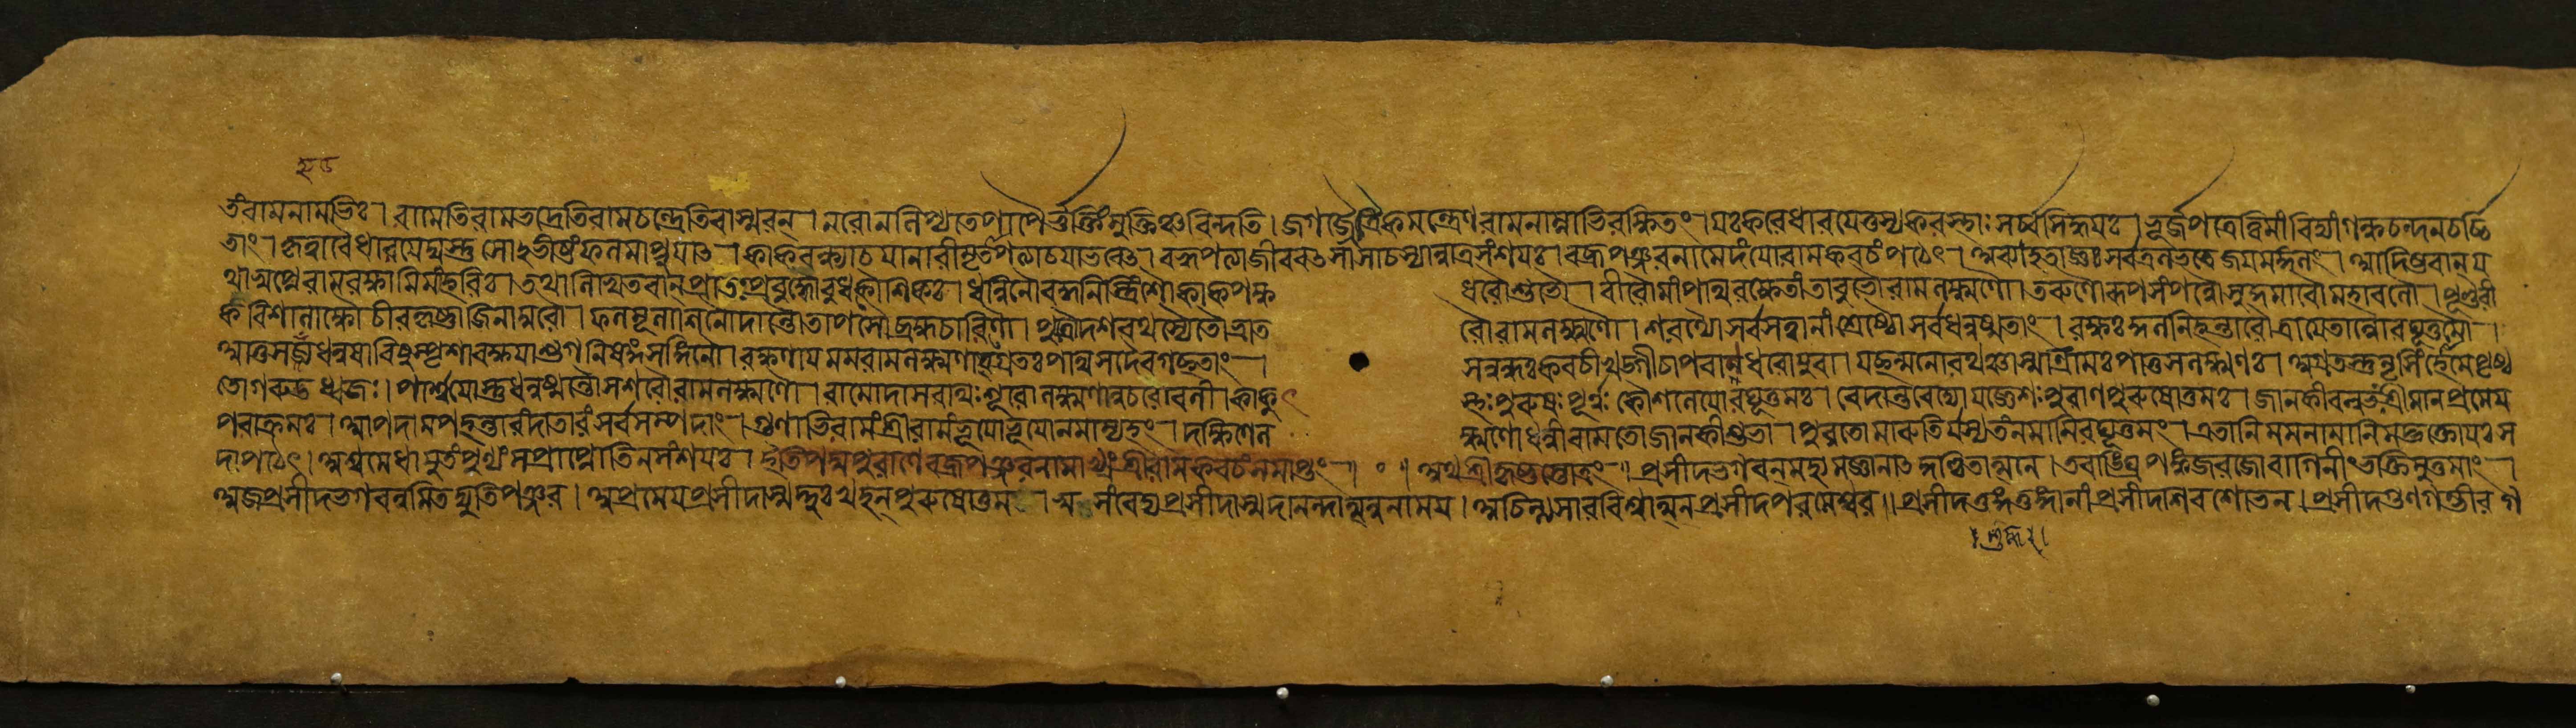 ত্তং রামনামভিঃ। রামেতি রামভদ্রেতি রামচন্দ্রেতি বা স্মরন্। নরো ন লিপ্যতে পাপৈর্ভুক্তিং মুক্তিঞ্চ বিন্দতি। জগজ্জৈত্রৈকমন্ত্রেণ রামনাম্নাভিরক্ষিতং। যঃ করে ধারয়েত্তস্য করস্থাঃ সর্ব্বসিদ্ধয়ঃ। ভূর্জপত্রেত্বিমাং বিদ্যাং গন্ধচন্দনচর্চ্চি
তাং। কৃত্বা বৈ ধারয়েদ্যস্তু সোঽভীষ্টং ফলমাপ্নুয়াৎ। কাকবন্ধ্যা চ যা নারী মৃতাপত্যা চ যা ভবেৎ। বহ্বপত্যা জীববৎসা সা চ স্যান্নাত্র সংশয়ঃ। বজ্রপঞ্জরনামেদং যো রামকবচং পঠেৎ। অব্যাহতাজ্ঞঃ সর্বত্র লভতে জয়মঙ্গলং। আদিষ্টবান্য
থা স্বপ্নে রামরক্ষামিমাং হরিঃ। তথা লিখিতবান্ প্রাতঃ প্রবুদ্ধো বুধকৌশিকঃ। ধন্বিনৌ বদ্ধনিস্ত্রিংশৌ কাকপক্ষধরৌ শ্রুতৌ। বীরৌ মাং পথি রক্ষেতাং তাবুভৌ রামলক্ষ্মণৌ। তরুণৌ রূপসংপন্নৌ সুকুমারৌ মহাবলৌ। পুণ্ডরী
কবিশালাক্ষৌ চীরকৃষ্ণাজিনাম্বরৌ। ফলমূলাশিনৌ দান্তৌ তাপসৌ ব্রহ্মচারিণৌ। পুত্রৌ দশরথস্যৈতৌ ভ্রাতরৌ রামলক্ষ্মণৌ। শরণ্যৌ সর্বসত্বানাং শ্রেষ্ঠৌ সর্বধনুষ্মতাং। রক্ষঃকুলনিহন্তারৌ ত্রায়েতান্নো রঘূত্তমৌ।
আত্তসজ্জধনুষাবিষুস্পৃশাবক্ষয়াশুগনিষঙ্গসঙ্গিনৌ। রক্ষণায় মম রামলক্ষ্মণাবগ্রতঃ পথি সদৈব গচ্ছতাং। সন্নদ্ধঃ কবচী খড়্গী চাপবাণধরো যুবা। যচ্ছন্মনোরথঞ্চাস্মাশ্রিামঃ পাতু সলক্ষ্মণঃ। অগ্রতস্তু নৃসিংহো মে পৃষ্ঠ
তো গরুড়ধ্বজঃ। পার্শ্বয়োস্তু ধনুষ্মন্তৌ সশরৌ রামলক্ষ্মণৌ। রামো দাসরথিঃ শূরো লক্ষ্মণানুচরো বলী। কাকুৎস্থঃ পুরুষঃ পূর্ণঃ কৌশলেয়ো রঘূত্তমঃ। বেদান্তবেদ্যো যজ্ঞেশঃ পুরাণপুরুষোত্তমঃ। জানকীবল্লভঃ শ্রীমানপ্রমেয়
পরাক্রমঃ। আপদামপহন্তারং দাতারং সর্বসম্পদাং। গুণাভিরামং শ্রীরামং ভূয়ো ভূয়ো নমাম্যহং। দক্ষিণে লক্ষ্মণো ধন্বী বামতো জানকী শুভা। পুরতো মারুতির্যস্য তং নমামি রঘূত্তমং। এতানি মম নামানি মদ্ভক্তো যঃ স
দা পঠেৎ। অশ্বমেধাযুতং পুণ্যং স প্রাপ্নোতি ন সংশয়ঃ। ইতি পদ্মপুরাণে বজ্রপঞ্জরনামাখ্যং শ্রীরামকবচং সমাপ্তং॥ ০॥ অথ শ্রীকৃষ্ণস্তোত্রং॥ প্রসীদ ভগবন্মহ্যমজ্ঞানাৎ কুণ্ঠিতাত্মনে। তবাঙ্ঘ্রিপঙ্কজরজোরাগিনীং ভক্তিমুত্তমাং।
অজ প্রসীদ ভগবন্নমিতদ্যুতিপঞ্জর। অপ্রমেয় প্রসীদাস্মদ্দুঃখহন্ পুরুষোত্তম। স্বসংবেদ্য প্রসীদাস্মদানন্দাত্মন্ননাময়। অচিন্ত্যসার বিশ্বাত্মন্ প্রসীদ পরমেশ্বর॥ প্রসীদ তুঙ্গতুঙ্গানাং প্রসীদ শিবশোভন। প্রসীদ গুণগম্ভীর গ